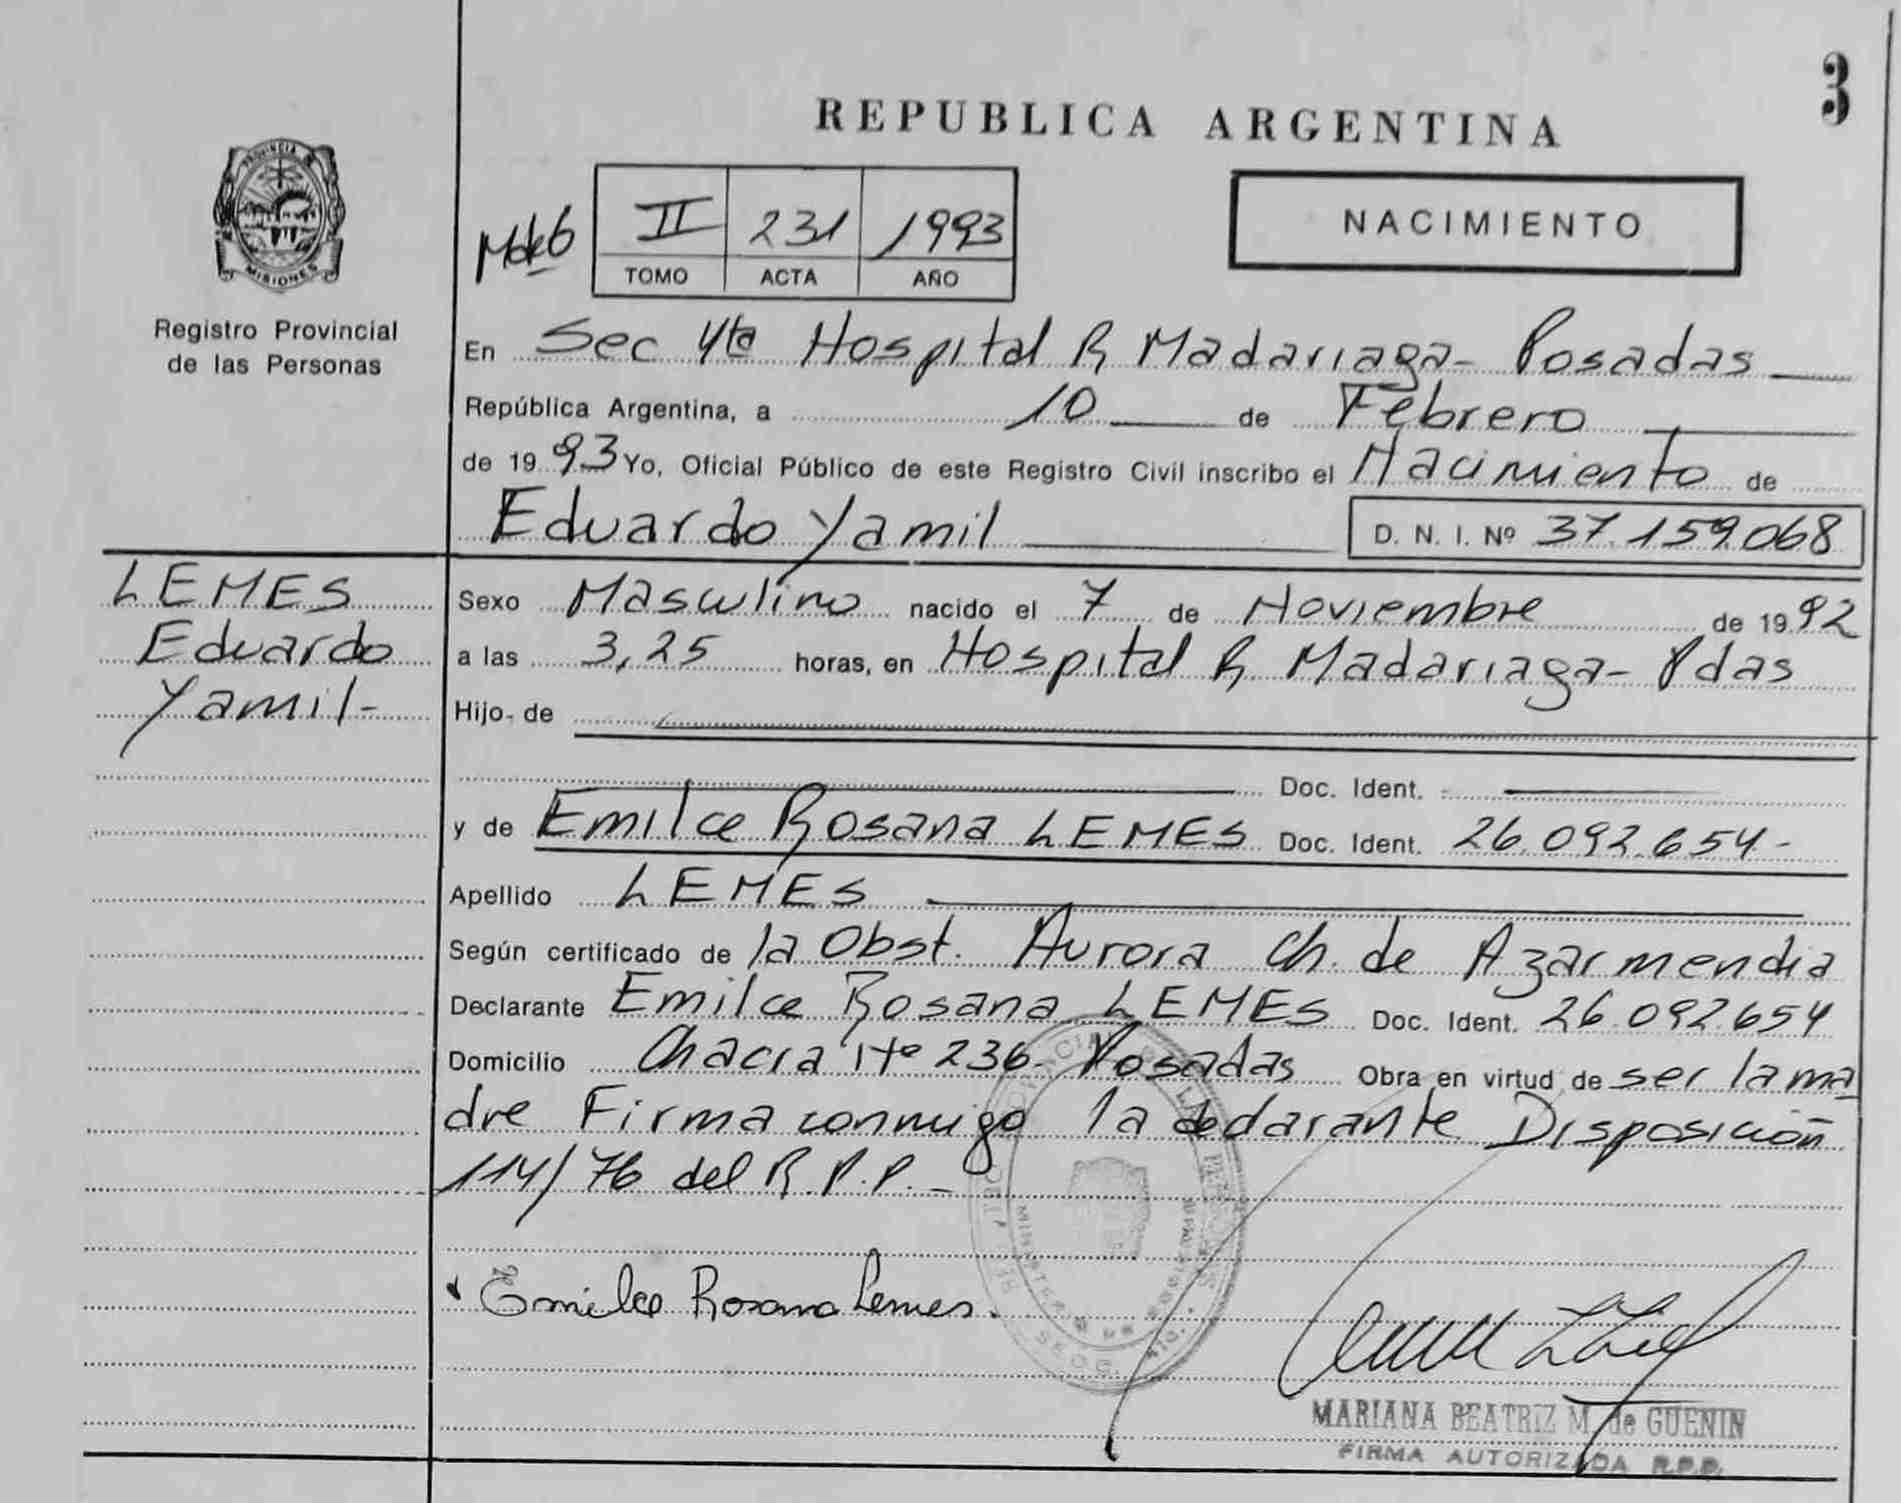 3
REPUBLICA ARGENTINA
PROVINCIA DE
MISIONES
Registro Provincial
de las Personas
II 231 1993
TOMO ACTA AÑO
NACIMIENTO
En Sec 4ta Hospital R Madariaga- Posadas
República Argentina, a 10 de Febrero
de 1993 Yo, Oficial Público de este Registro Civil inscribo el Nacimiento de
Eduardo Yamil D. N. I. Nº 37.159.068
LEMES
Eduardo
Yamil-
Sexo Masculino nacido el 7 de Noviembre de 1992
a las 3,25 horas, en Hospital R Madariaga- Pdas
Hijo de
Doc. Ident.
y de Emilce Rosana LEMES Doc. Ident. 26.092.654-
Apellido LEMES
Según certificado de la Obst. Aurora Ch. de Azarmendia
Declarante Emilce Rosana LEMES Doc. Ident. 26.092.654
Domicilio Chacra Nº 236- Posadas Obra en virtud de ser la ma
dre Firma conmigo la declarante Disposición
114/76 del R.P.P.-
Emilce Rosana Lemes.
MARIANA BEATRIZ M. de GUENIN
FIRMA AUTORIZADA R.P.P.